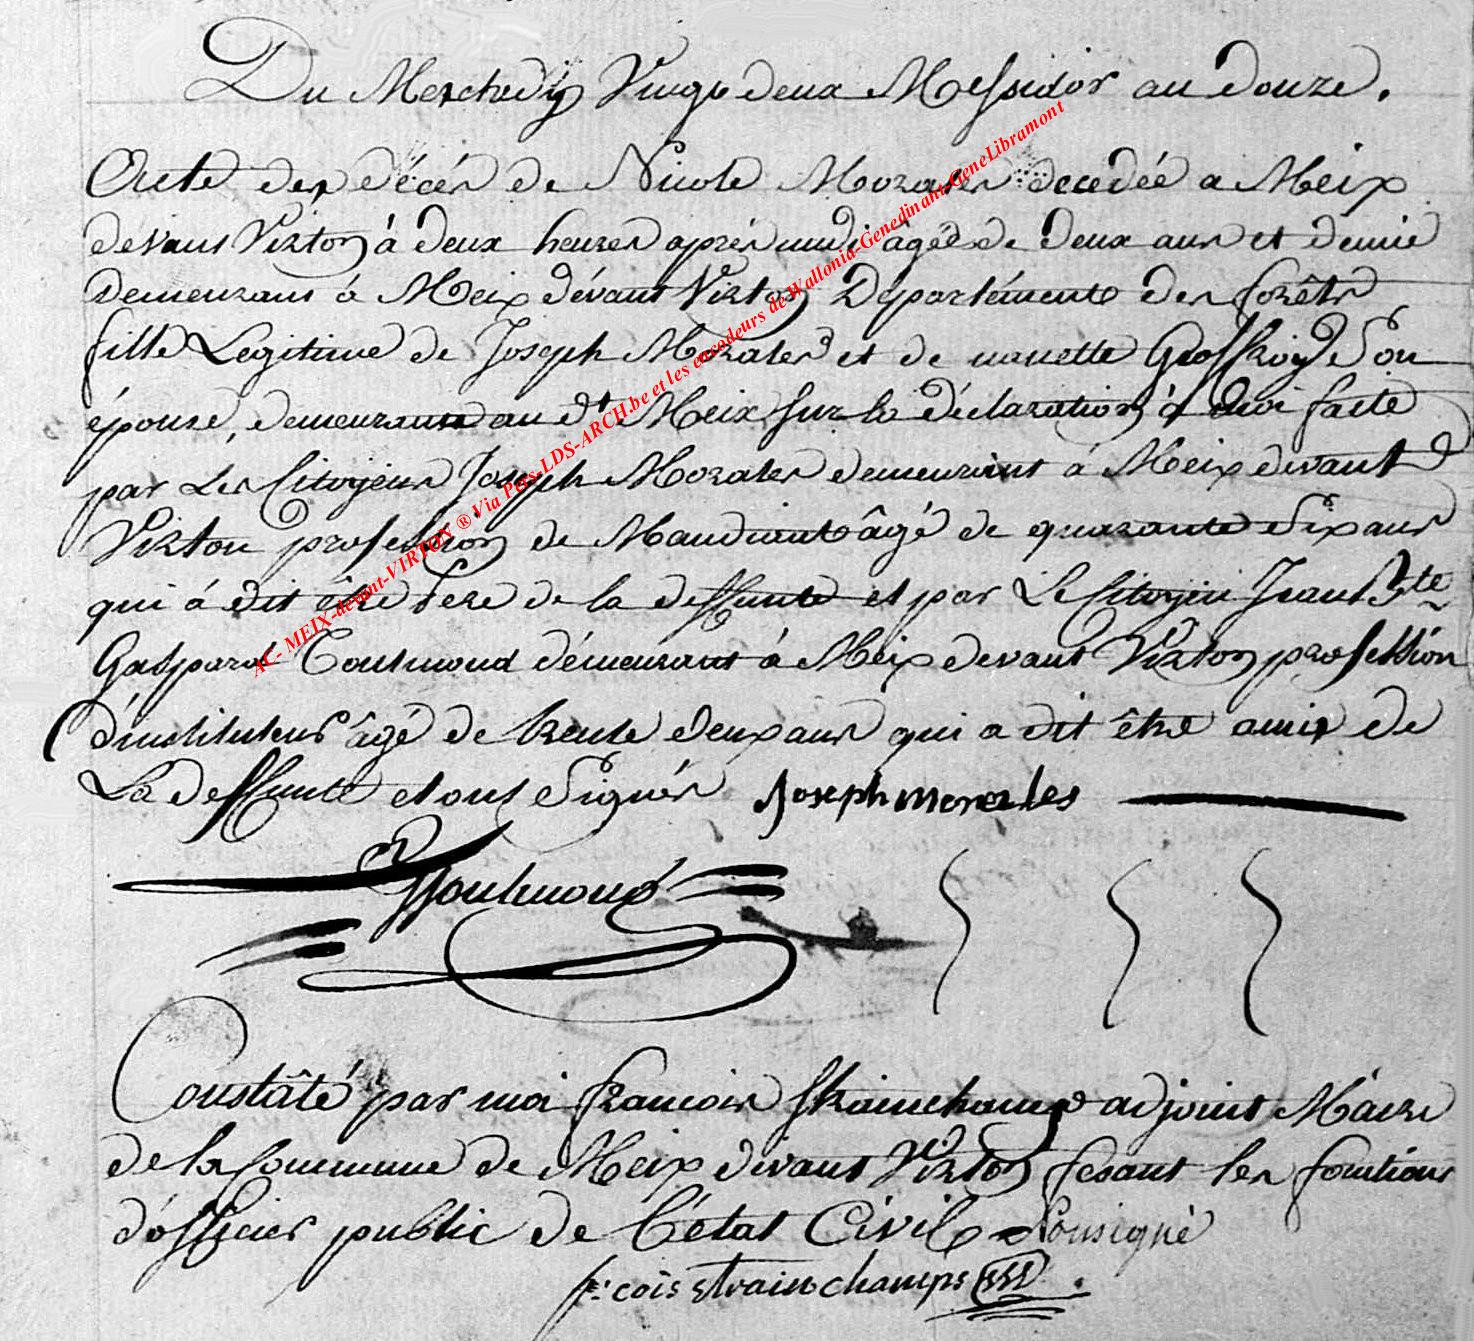 Du Merchedy Vingt deux Messidor an douze.
Acte des décés de Nicole Morales decedée a Meix
devant Virton à deux heures aprés midi agée de deux ans et demie
Demeurant à Meix dévant Virton Départémente des forêts
fille Legitime de Joseph Morales et de nanette Geoffroy Son
épouse, demeurante au dt Meix sur la déclaration à moi faite
par Les Citoyens Joseph Morales demeurant à Meix devant
Virton profession de Mandiant âgé de quarante Six ans
qui à dit être Pere de la deffunte et par Le Citoyen Jean Bte
Gaspard Toulmond démeurant à Meix devant Virton profession
d'instituteur âgé de trente deux ans qui a dit être amis de
La deffunte et ont Signés Joseph Morales
Toulmond
Constâté par moi francois Strainchamps adjoint Maire
de la Commune de Meix devant Virton fesant les fonctions
d'officier public de l'état Civil Sousigné
fr: cois strainchamps
AC- MEIX-devant-VIRTON ® Via Pers-LDS-ARCH.be et les encodeurs de Wallonia-Genedinant-GeneLibramont